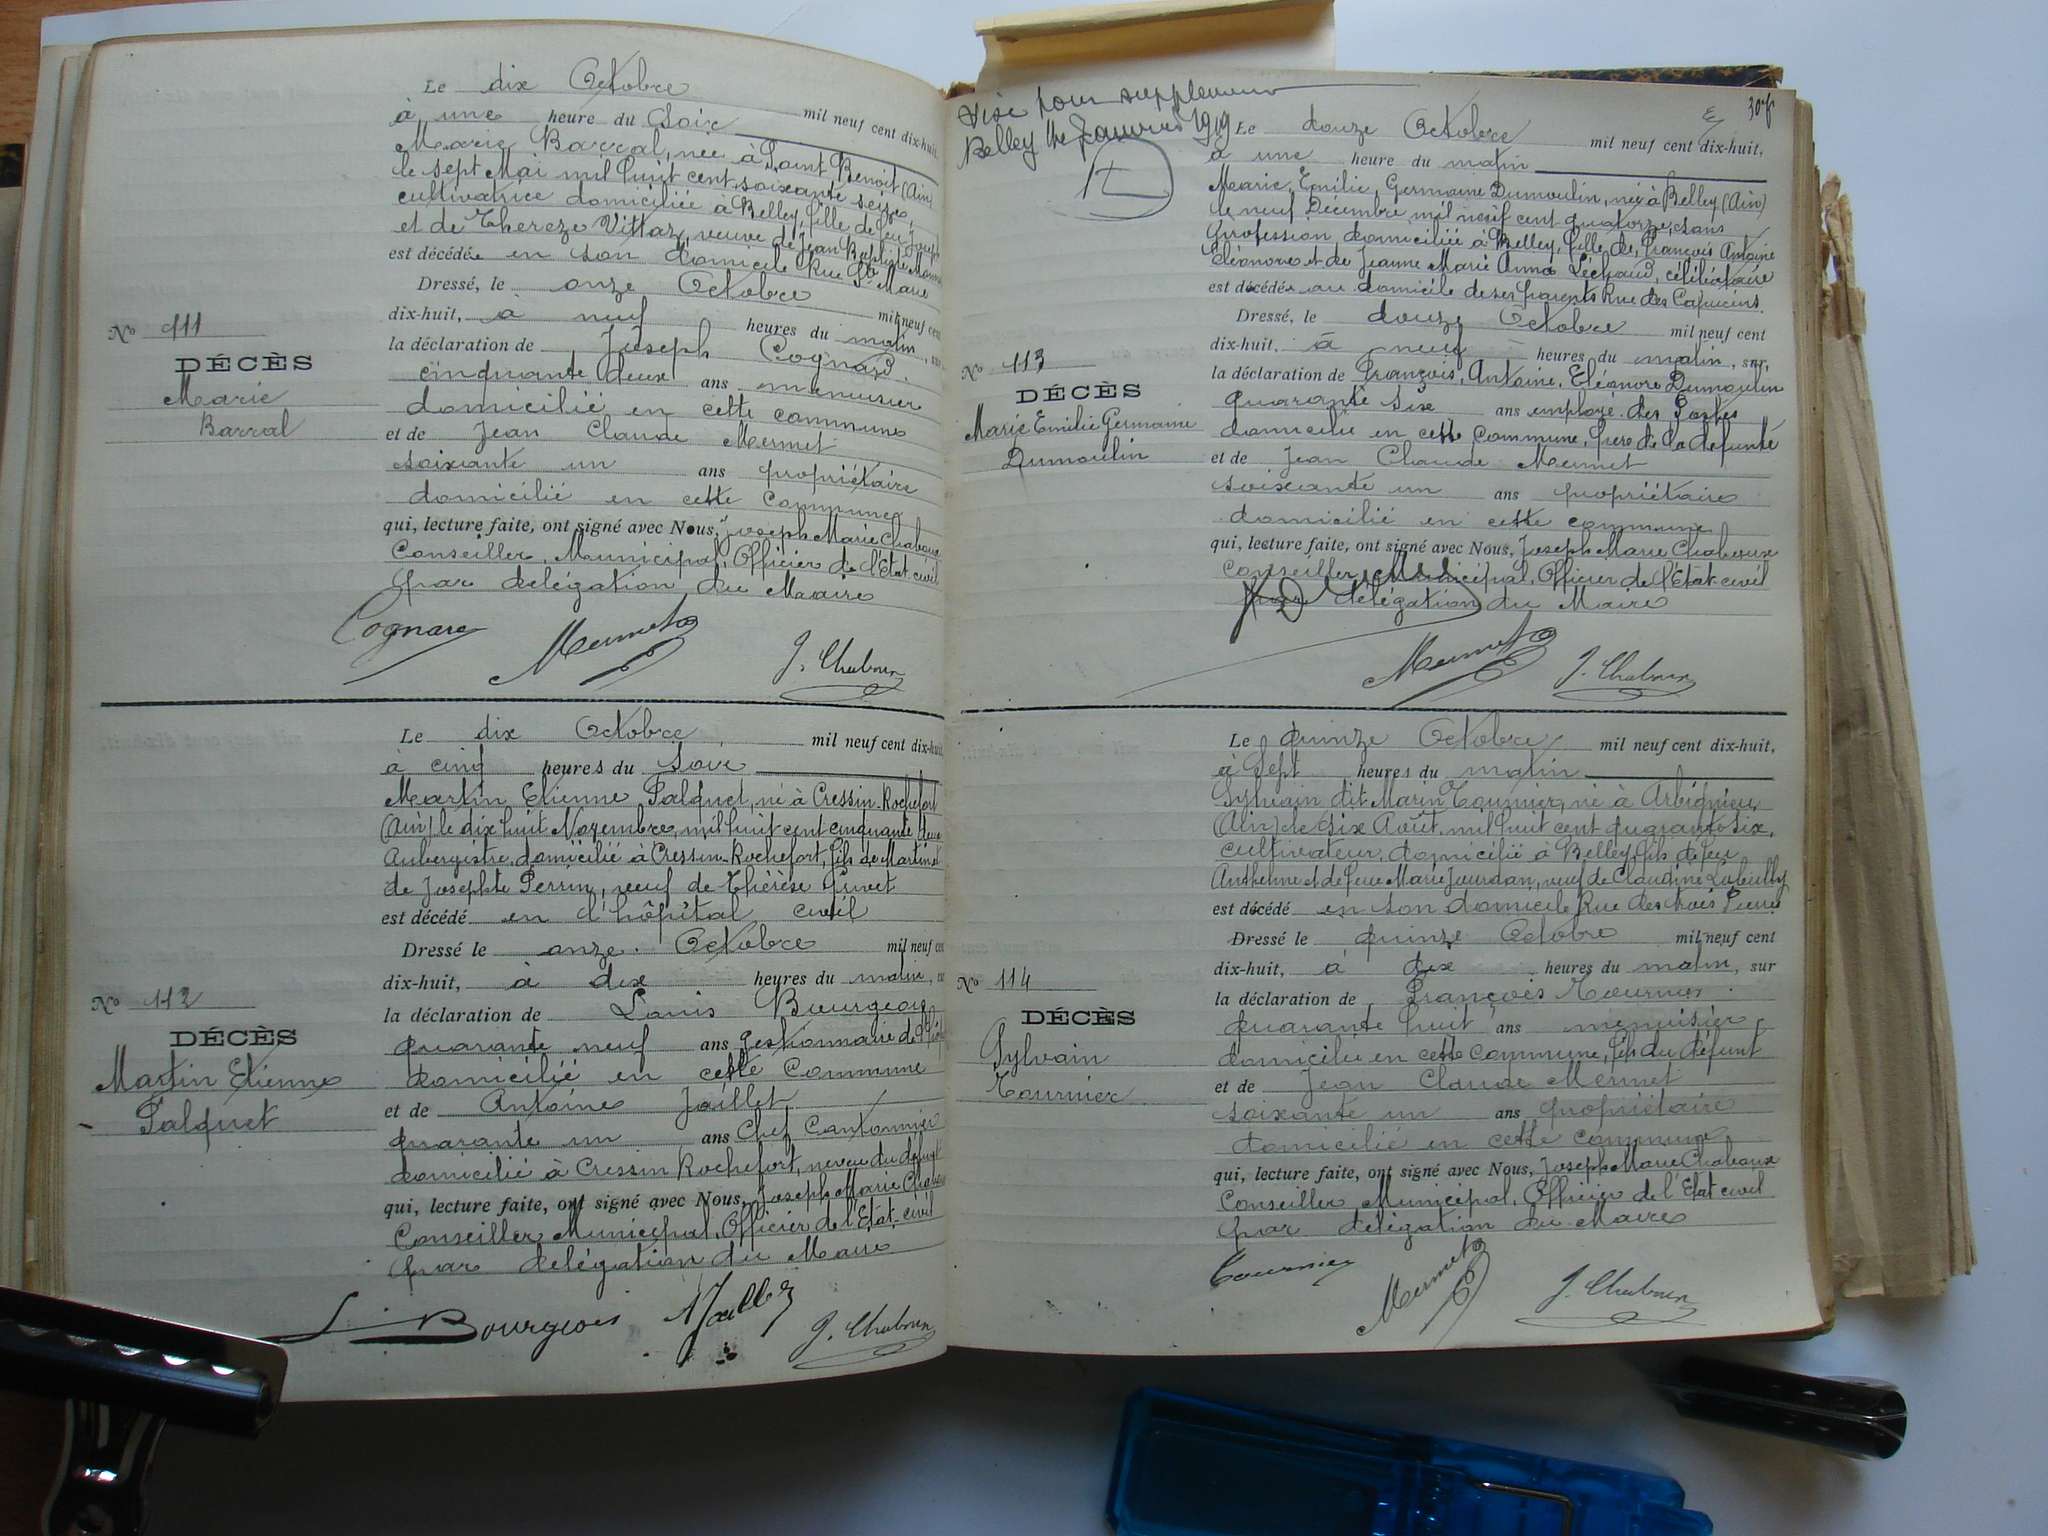 Le dix Octobre mil neuf cent dix-huit,
à une heure du Soir
Marie Barral, née à Saint Benoit (Ain)
le sept Mai mil huit cent soixante seize,
cultivatrice domiciliée à Belley, fille de feu Joseph
et de Thereze Vittaz, veuve de Jean Baptiste
est décédée en son domicile Rue Ste Marie
Dressé, le onze Octobre mil neuf cent
dix-huit, à neuf heures du matin, sur
No 111
la déclaration de Joseph Cognard
DÉCÈS
cinquante deux ans menuisier
Marie
domicilié en cette commune
Barral
et de Jean Claude Mermet
soixante un ans propriétaire
domicilié en cette Commune
qui, lecture faite, ont signé avec Nous, Joseph Marie Chaboux
Conseiller Municipal, Officier de l'Etat civil
par délégation du Maire
Cognard Mermet J. Chaboux
Le dix Octobre mil neuf cent dix-huit,
à cinq heures du Soir
Martin Etienne Palquet, né à Cressin-Rochefort
(Ain) le dix huit Novembre, mil huit cent cinquante deux
Aubergiste, domicilié à Cressin-Rochefort, fils de Martin et
de Josephte Perrin, veuf de Thérèse
est décédé en l'hôpital civil
Dressé le onze Octobre mil neuf cent
dix-huit, à dix heures du matin, sur
No 112
la déclaration de Louis Bourgeois
DÉCÈS
quarante neuf ans gestionnaire de
Martin Etienne
domicilié en cette Commune
Palquet
et de Antoine Jaillet
quarante un ans Chef Cantonnier
domicilié à Cressin Rochefort, neveu du défunt
qui, lecture faite, ont signé avec Nous, Joseph Marie Chaboux
Conseiller Municipal, Officier de l'Etat-civil
par délégation du Maire
Bourgeois Jaillet J. Chaboux
308
Visé pour supplement
Belley le janvier 1919
Le douze Octobre mil neuf cent dix-huit,
à une heure du matin
Marie, Emilie, Germaine Dumoulin, née à Belley (Ain)
le neuf Décembre mil neuf cent quatorze, sans
profession domiciliée à Belley, fille de, François Antoine
Eléonore et de Jeanne Marie Anna Léchaud, célibataire
est décédée au domicile de ses parents Rue des Capucins
Dressé, le douze Octobre mil neuf cent
dix-huit, à neuf heures du matin, sur,
No 113
la déclaration de François, Antoine, Eléonore Dumoulin
DÉCÈS
quarante six ans employé des Postes
Marie Emilie Germaine
domicilié en cette Commune, père de la défunte
Dumoulin
et de Jean Claude Mermet
soixante un ans propriétaire
domicilié en cette commune
qui, lecture faite, ont signé avec Nous, Joseph Marie Chaboux
Conseiller Municipal, Officier de l'Etat-civil
par délégation du Maire
Mermet J. Chaboux
Le quinze Octobre mil neuf cent dix-huit,
à sept heures du matin
Sylvain dit Marin Tournier, né à Arbignieu
(Ain) le six Août mil huit cent quarante six,
cultivateur, domicilié à Belley, fils de feu
Anthelme et de feue Marie Jourdan, veuf de Claudine
est décédé en son domicile Rue des trois
Dressé le quinze Octobre mil neuf cent
dix-huit, à dix heures du matin, sur
No 114
la déclaration de François Tournier
DÉCÈS
quarante huit ans menuisier
Sylvain
domicilié en cette Commune, fils du défunt
Tournier
et de Jean Claude Mermet
soixante un ans propriétaire
domicilié en cette commune
qui, lecture faite, ont signé avec Nous, Joseph Marie Chaboux
Conseiller Municipal, Officier de l'Etat civil
par délégation du Maire
Tournier Mermet J. Chaboux